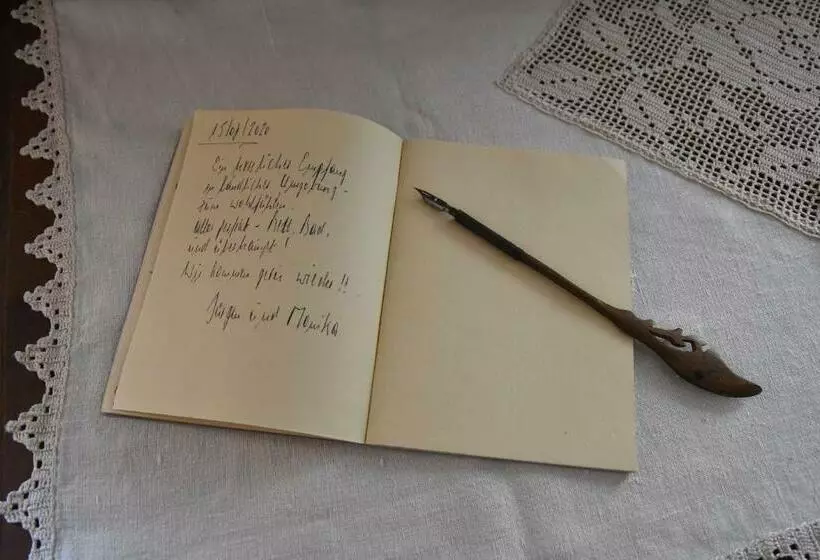 15/08/2020
Ein herzlicher Empfang
in ländlicher Umgebung -
zum wohlfühlen.
alles perfekt - Bett, Bad,
und überhaupt!
Wir kommen gerne wieder!!
Jürgen und Monika